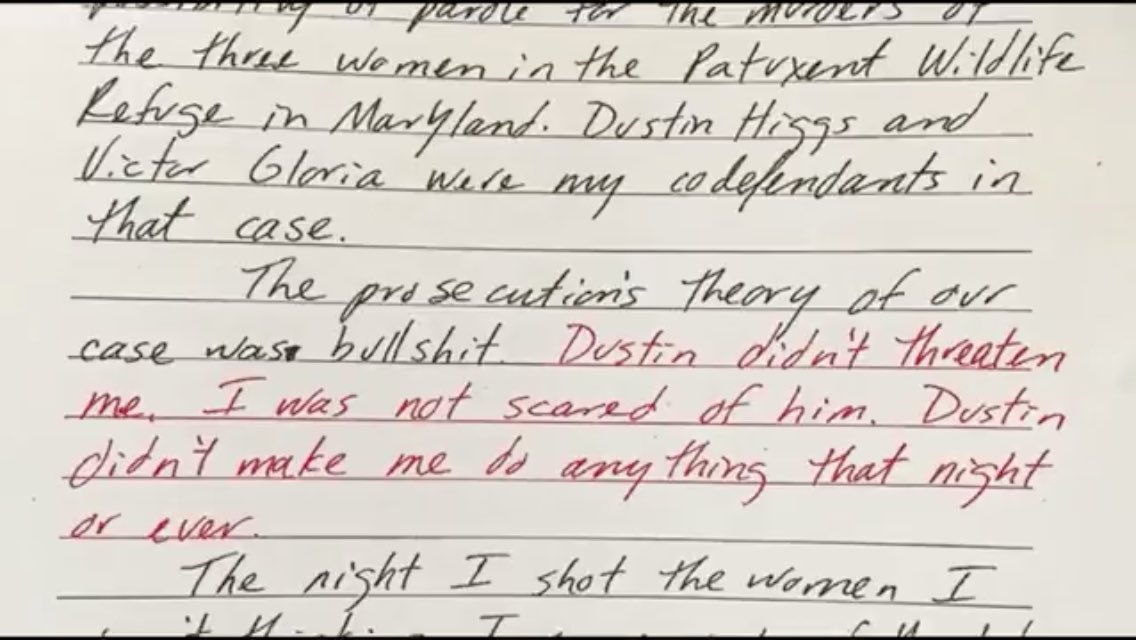 possibility of parole for the murders of
the three women in the Patuxent Wildlife
Refuge in Maryland. Dustin Higgs and
Victor Gloria were my codefendants in
that case.
The prosecution's theory of our
case was bullshit. Dustin didn't threaten
me. I was not scared of him. Dustin
didn't make me do anything that night
or ever.
The night I shot the women I